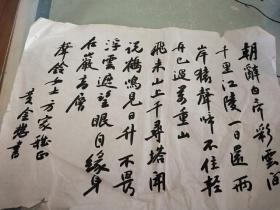 朝辭白帝彩雲间
千里江陵一日還兩
岸猿聲啼不住輕
舟已過萬重山
飛来山上千尋塔聞
说鷄鳴見日升不畏
浮雲遮望眼自緣身
在最高層
女士方家雅正
黄金書